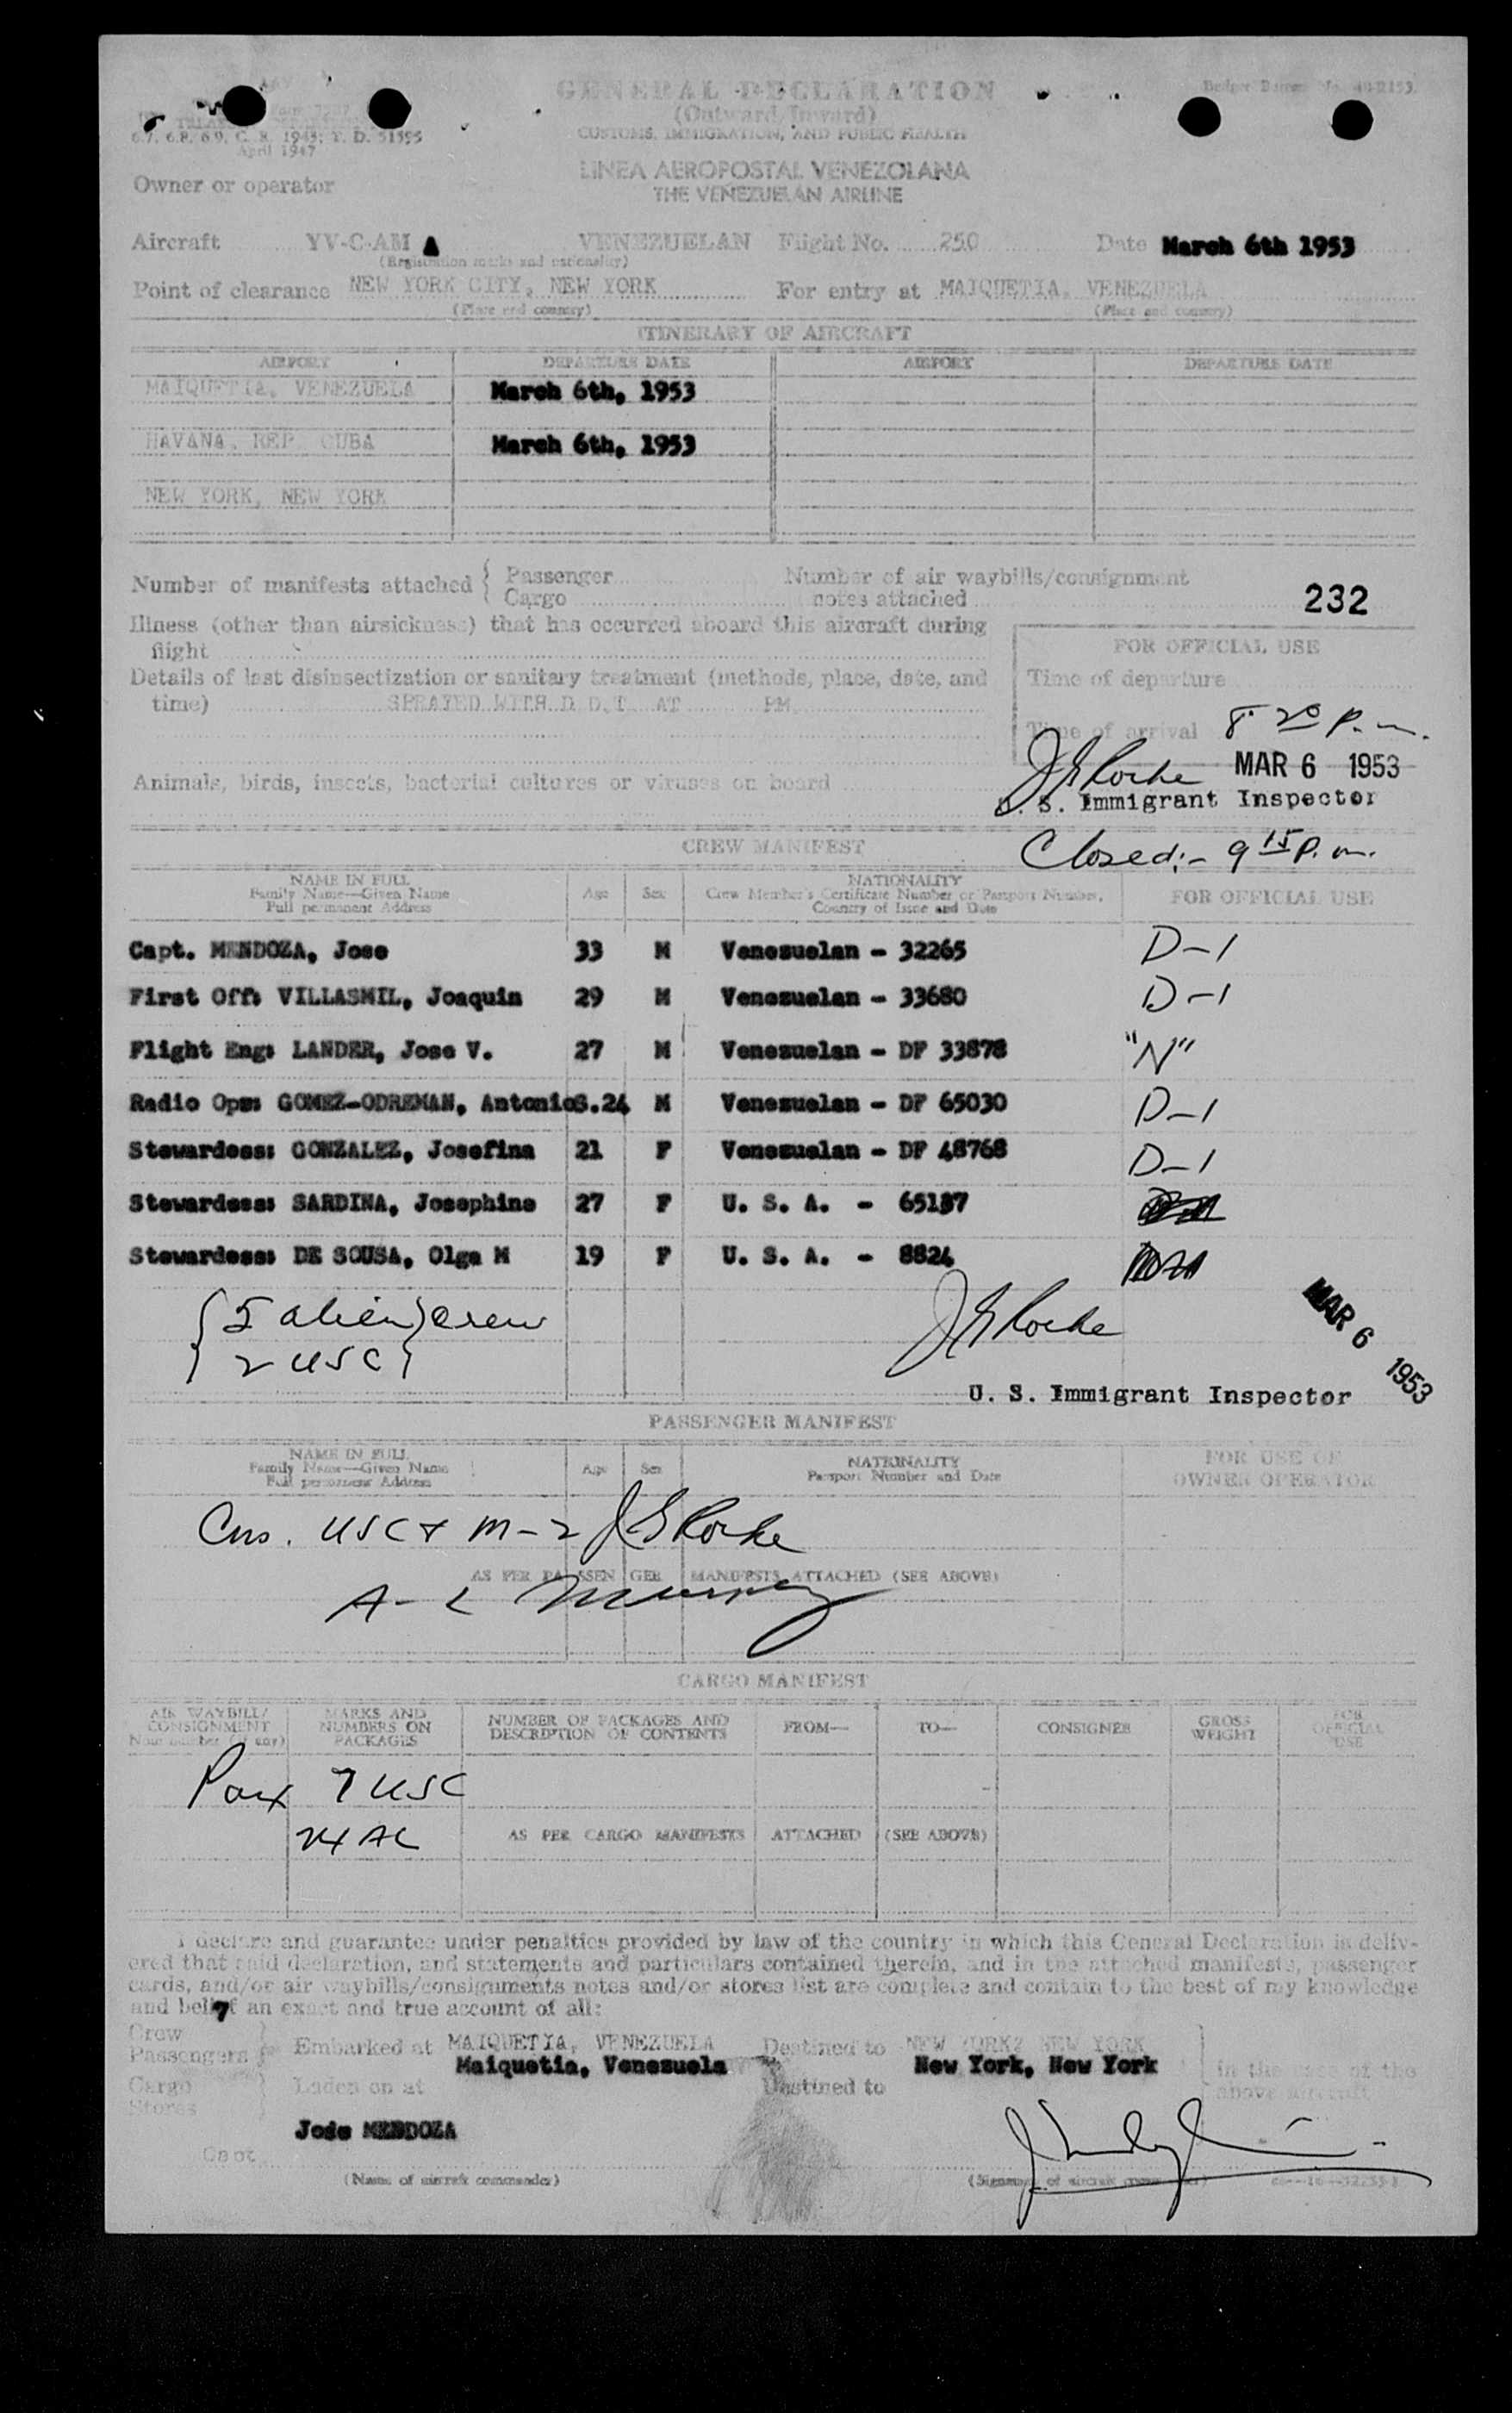 GENERAL DECLARATION
(Outward/Inward)
CUSTOMS, IMMIGRATION, AND PUBLIC HEALTH
6.7, 6.8, 6.9, C. R. 1943; T. D. 51595
April 1947
LINEA AEROPOSTAL VENEZOLANA
THE VENEZUELAN AIRLINE
Owner or operator
Aircraft YV-C-AM VENEZUELAN Flight No. 250 Date March 6th 1953
(Registration marks and nationality)
Point of clearance NEW YORK CITY, NEW YORK For entry at MAIQUETIA, VENEZUELA
(Place and country) (Place and country)
ITINERARY OF AIRCRAFT
AIRPORT DEPARTURE DATE AIRPORT DEPARTURE DATE
MAIQUETIA, VENEZUELA March 6th, 1953
HAVANA, REP. CUBA March 6th, 1953
NEW YORK, NEW YORK
Number of manifests attached { Passenger Number of air waybills/consignment
Cargo notes attached 232
Illness (other than airsickness) that has occurred aboard this aircraft during
flight
FOR OFFICIAL USE
Details of last disinsectization or sanitary treatment (methods, place, date, and
time) SPRAYED WITH D.D.T. AT PM.
Time of departure
Time of arrival 8 20 P.m.
J E Roche MAR 6 1953
U. S. Immigrant Inspector
Animals, birds, insects, bacterial cultures or viruses on board
Closed:- 9 15 P.m.
CREW MANIFEST
NAME IN FULL
Family Name—Given Name
Full permanent Address
Age Sex
NATIONALITY
Crew Member's Certificate Number or Passport Number,
Country of Issue and Date
FOR OFFICIAL USE
Capt. MENDOZA, Jose 33 M Venezuelan - 32265 D-1
First Off: VILLASMIL, Joaquin 29 M Venezuelan - 33680 D-1
Flight Eng: LANDER, Jose V. 27 M Venezuelan - DF 33878 "N"
Radio Opr: GOMEZ-ODREMAN, Antonio S. 24 M Venezuelan - DF 65030 D-1
Stewardess: GONZALEZ, Josefina 21 F Venezuelan - DF 48768 D-1
Stewardess: SARDINA, Josephine 27 F U. S. A. - 65187
Stewardess: DE SOUSA, Olga M 19 F U. S. A. - 8824
{5 alien} crew
{2 USC}
J E Roche
MAR 6 1953
U. S. Immigrant Inspector
PASSENGER MANIFEST
NAME IN FULL
Family Name—Given Name
Full permanent Address
Age Sex
NATIONALITY
Passport Number and Date
FOR USE OF
OWNER OPERATOR
USC & M-2 J E Roche
AS PER PASSENGER MANIFESTS ATTACHED (SEE ABOVE)
A-L Murray
CARGO MANIFEST
AIR WAYBILL/
CONSIGNMENT
MARKS AND
NUMBERS ON
PACKAGES
NUMBER OF PACKAGES AND
DESCRIPTION OF CONTENTS
FROM— TO— CONSIGNEE
GROSS
WEIGHT
FOR
OFFICIAL
USE
Pax 7 USC
24 AL
AS PER CARGO MANIFESTS ATTACHED (SEE ABOVE)
I declare and guarantee under penalties provided by law of the country in which this General Declaration is deliv-
ered that said declaration, and statements and particulars contained therein, and in the attached manifests, passenger
cards, and/or air waybills/consignments notes and/or stores list are complete and contain to the best of my knowledge
and belief an exact and true account of all:
Crew
Passengers
Embarked at MAIQUETIA, VENEZUELA Destined to NEW YORK, NEW YORK
Maiquetia, Venezuela New York, New York
Cargo
Stores
Laden on at Destined to
in the case of the
above aircraft
Jose MENDOZA
Capt.
(Name of aircraft commander) (Signature of aircraft commander)